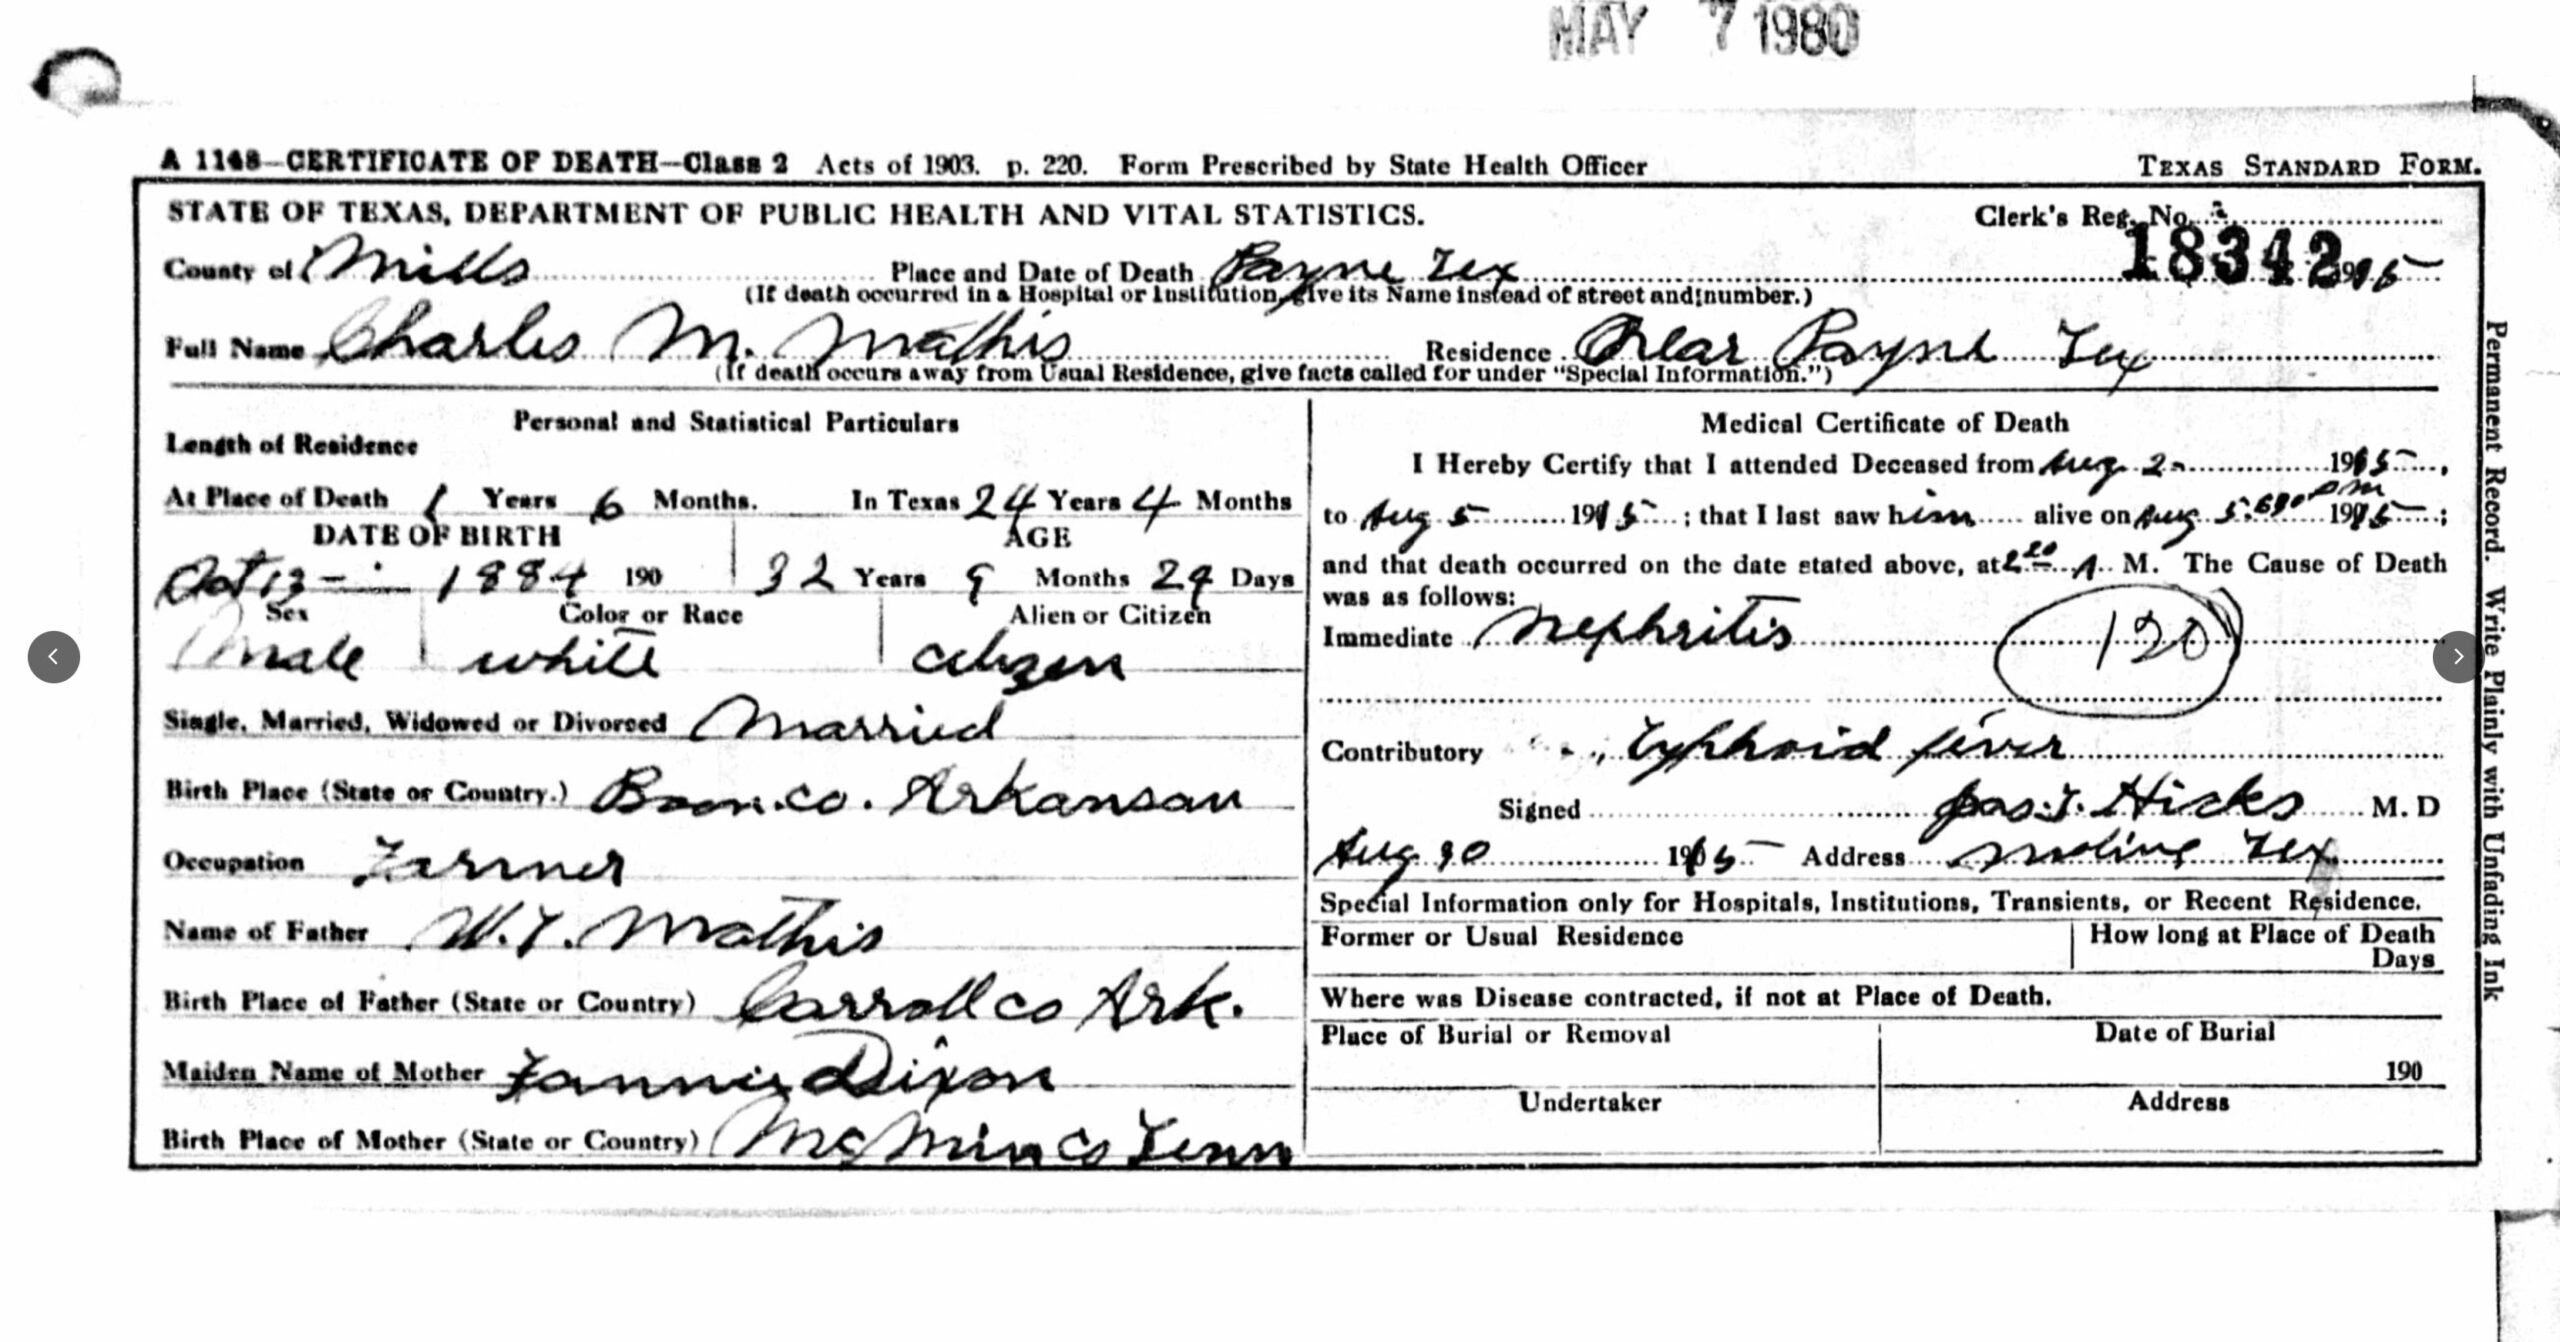 MAY 7 1980
A 1148—CERTIFICATE OF DEATH—Class 2 Acts of 1903. p. 220. Form Prescribed by State Health Officer TEXAS STANDARD FORM.
STATE OF TEXAS, DEPARTMENT OF PUBLIC HEALTH AND VITAL STATISTICS. Clerk's Reg. No.
18342
County of Mills Place and Date of Death Payne Tex 1915
(If death occurred in a Hospital or Institution, give its Name instead of street and number.)
Full Name Charles M. Mathis Residence Near Payne Tex
(If death occurs away from Usual Residence, give facts called for under "Special Information.")
Personal and Statistical Particulars
Length of Residence
At Place of Death 1 Years 6 Months. In Texas 24 Years 4 Months
DATE OF BIRTH AGE
Oct 13 - 1884 190 32 Years 9 Months 24 Days
Sex Color or Race Alien or Citizen
Male white citizen
Single, Married, Widowed or Divorced Married
Birth Place (State or Country.) Boon. co. Arkansas
Occupation Farmer
Name of Father W. T. Mathis
Birth Place of Father (State or Country) Carroll co Ark.
Maiden Name of Mother Fannie Dixon
Birth Place of Mother (State or Country) McMin Co Tenn
Medical Certificate of Death
I Hereby Certify that I attended Deceased from Aug 2 1915,
to Aug 5 1915; that I last saw him alive on Aug 5 pm 1915;
and that death occurred on the date stated above, at A M. The Cause of Death
was as follows:
Immediate Nephritis 120
Contributory Typhoid fever
Signed Jas. T. Hicks M. D
Aug 1915 Address Moline Tex
Special Information only for Hospitals, Institutions, Transients, or Recent Residence.
Former or Usual Residence How long at Place of Death
Days
Where was Disease contracted, if not at Place of Death.
Place of Burial or Removal Date of Burial
190
Undertaker Address
Permanent Record. Write Plainly with Unfading Ink